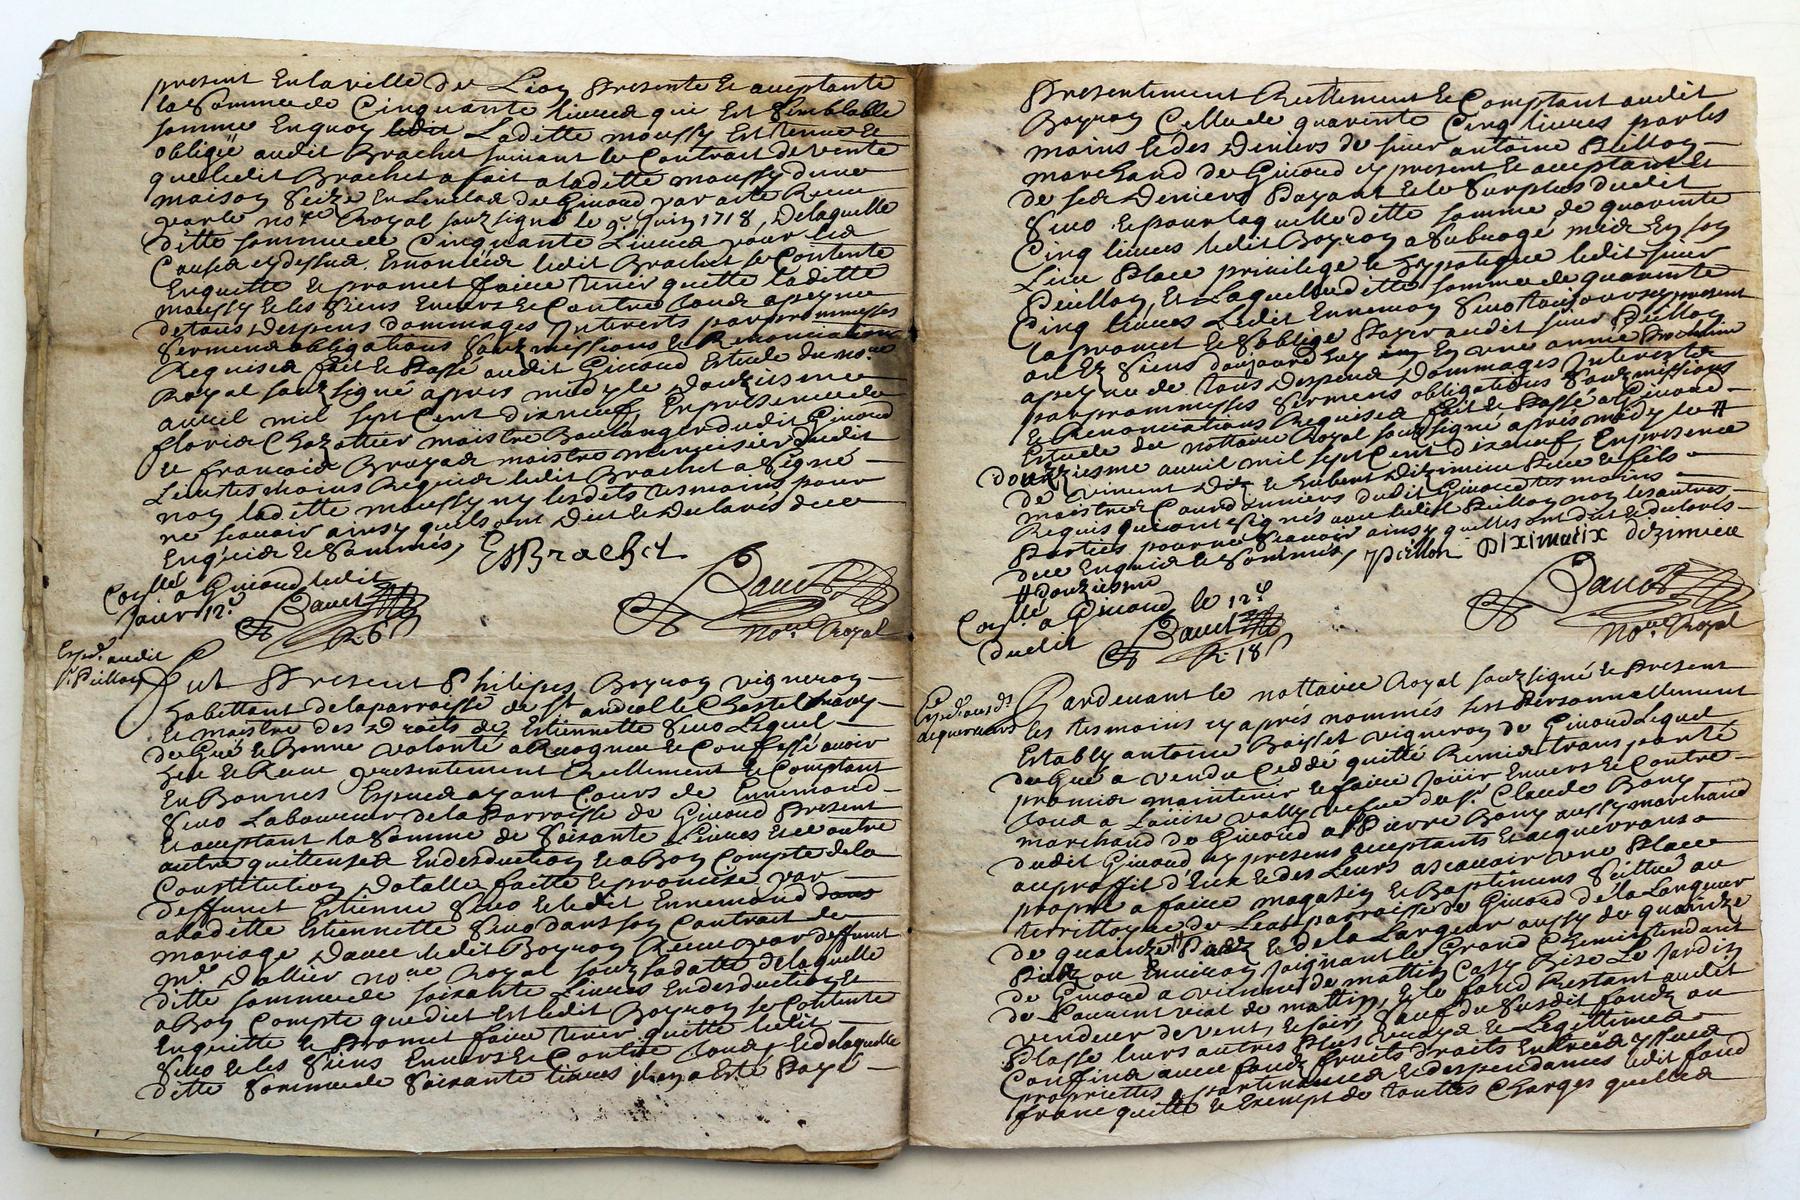 present En la ville de Lion Presente et aceptante
la Somme de Cinquante livres qui est Semblable
somme En quoy Laditte moussy Est tenue et
obligée audit Brachet suivant le Contrat de vente
que ledit Brachet a fait a laditte moussy d'une
maison size En L'enclos de Givord par acte Receu
par le no.re Royal souzsigné le 9.e Juin 1718, de laquelle
ditte somme de Cinquante Livres pour les
Causes cy dessus Enoncées ledit Brachet se Contente
Enquitte et promet faire tenir quitte laditte
moussy et les Siens Envers et Contre touts a peyne
de tous despens dommages Interests par prommesses
Sermens obligations Souzmissions et Renonciations
Requises fait et Passé audit Givord Estude du no.re
Royal souzsigné apres midy le douziesme
avril mil sept Cent dixneuf, En presence de
Floris Chazottier maistre Boulanger dudit Givord
et francois Broyas maistre menuisier dudit
Lieu tesmoins Requis ledit Brachet a Signé
non laditte moussy ny lesdits tesmoins pour
ne scavoir ainsy quils ont Dit et Declarés de ce
Enquis et Sommés, EsBrachet
Con.llé a Givord ledit
jour 12.e
R 6 s
no.re Royal
Exped. audit
s.r Peillon
Fut Present Philipes Boyron vigneron
habittant de la parroisse de st andeol le Chastel
et maistre des Droits de Estiennette Sivo Lequel
de Gré et Bonne volonté a Recognu et Confessé avoir
heu et Receu presentement Reellement et Comptant
En Bonnes Espuces ayant Cours de Ennemond
Sivo Laboureur de la Parroisse de Givord Present
et aceptant la Somme de Soixante Livres et ce outre
autre quittenses En desduction et a Bon Compte de la
Constitution Dotalle faitte et promise par
deffunct Etienne Sivo et ledit Ennemond
a laditte Estiennette Sivo dans son Contrait de
mariage D'avec ledit Boyron Receu par deffunct
m.e Dallier no.re Royal souz sa datte de laquelle
ditte somme de soixante Livres En desduction et
a Bon Compte que dict Est ledit Boyron se Contente
Enquitte et Promet faire tenir quitte ledit
Sivo et les Siens Envers et Contre touts, et de laquelle
ditte Somme de Soixante livres il en a Esté Payé
Presentiment Reellement et Comptant audit
Boyron Celle de quarente Cinq livres par les
mains et des Deniers de sieur antoine Peillon
marchand de Givord cy present et aceptant et
de ses Deniers Payant et le Surplus dudit
Sivo et pour laquelle ditte somme de quarante
Cinq livres ledit Boyron a Subrogé mis En son
Lieu Place privilege et hypoteque ledit sieur
Peillon, Et Laquelle ditte somme de quarante
Cinq livres Ledit Ennemon Sivo tousjours cy present
la promet et S'oblige Payer audit sieur Peillon
ou Ez Siens d'aujourd'huy En une année Prochaine
a peyne de tous Despens Dommages Interests
par prommesses Sermens obligations Souzmissions
et Renonciations Requises fait et Passé a Givord
Estude du nottaire Royal souzsigné aprés midy le #
douzziesme avril mil sept Cent dixneuf, En presence
de Vincent Diz et hubert Diziemieu Pere et fils
maistres Courdonniers dudit Givord tesmoins
Requis qui ont signés avec ledit Peillon non les autres
Parties pour ne Scavoir ainsy quelles ont dit et declarés
de ce Enquis et Sommés, Peillon Diximieix dizimieu
# douziesme
Con.llé a Givord le 12.e
dudit
R. 18 s
no.re Royal
Exped. aus d.
acquereurs
Pardevant le nottaire Royal souzsigné et Present
les tesmoins cy aprés nommés fust Personnellement
Estably antoine Boisset vigneron de Givord Lequel
de Gré a vendu Ceddé quitté Remis transporté
promis maintenir et faire Jouir Envers et Contre
touts a Louise vally vefve du s.r Claude Bony
marchand de Givord a Pierre Bony aussy marchand
dudit Givord cy presens aceptants et acquerrants
au proffit d'Eux et des Leurs a scavoir une Place
propre a faire magasin et Baptimens Scittué au
territtoyre de Leas parroisse de Givord de la Longueur
de quainze Piedz et de la Largeur aussy de quainze
Piedz ou Environ Joignant le Grand Chemin tendant
de Givord a vienne de mattin Casy Bise Le Jardin
de Laurent vial de mattin, et le fond Restant audit
vendeur de vent, et soir, Sauf du Susdit fondz ou
Plasse leurs autres Plus vrays et Legittimes
Conffins avec fondz fruits droits Entrées yssues
propriettes apartinances et despendances ledit fond
franc quitte et Exempt de touttes Charges quelles